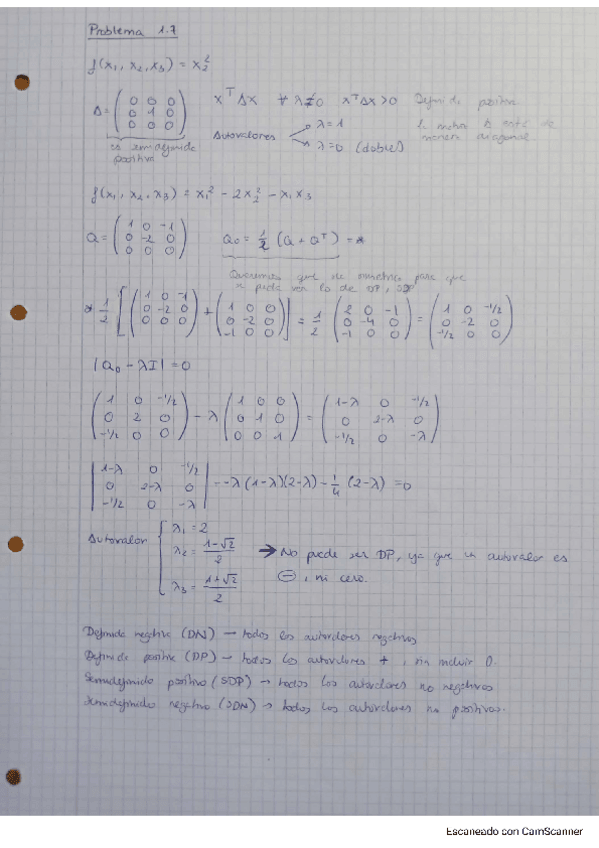 Problema 1.7
f(x₁, x₂, x₃) = x₂²
A = ( 0 0 0 / 0 1 0 / 0 0 0 ) xᵀAx ∀ λ≠0 xᵀAx > 0 Definida positiva
es semidefinida positiva
Autovalores λ=1
λ=0 (doble)
la matriz de manera diagonal
f(x₁, x₂, x₃) = x₁² - 2x₂² - x₁x₃
Q = ( 1 0 -1 / 0 -2 0 / 0 0 0 ) Q₀ = 1/2 (Q + Qᵀ) = *
Queremos que simétrica para que se pueda ver lo de DP, SDP
* 1/2 [ ( 1 0 -1 / 0 -2 0 / 0 0 0 ) + ( 1 0 0 / 0 -2 0 / -1 0 0 ) ] = 1/2 ( 2 0 -1 / 0 -4 0 / -1 0 0 ) = ( 1 0 -1/2 / 0 -2 0 / -1/2 0 0 )
|Q₀ - λI| = 0
( 1 0 -1/2 / 0 2 0 / -1/2 0 0 ) - λ ( 1 0 0 / 0 1 0 / 0 0 1 ) = ( 1-λ 0 -1/2 / 0 2-λ 0 / -1/2 0 -λ )
| 1-λ 0 -1/2 / 0 2-λ 0 / -1/2 0 -λ | = -λ(1-λ)(2-λ) - 1/4 (2-λ) = 0
Autovalor { λ₁ = 2
λ₂ = (1-√2)/2 → No puede ser DP, ya que un autovalor es
⊖, ni cero.
λ₃ = (1+√2)/2
Definida negativa (DN) — todos los autovalores negativos
Definida positiva (DP) — todos los autovalores +, sin incluir 0.
Semidefinido positivo (SDP) → todos los autovalores no negativos
Semidefinido negativo (SDN) → todos los autovalores no positivos.
Escaneado con CamScanner